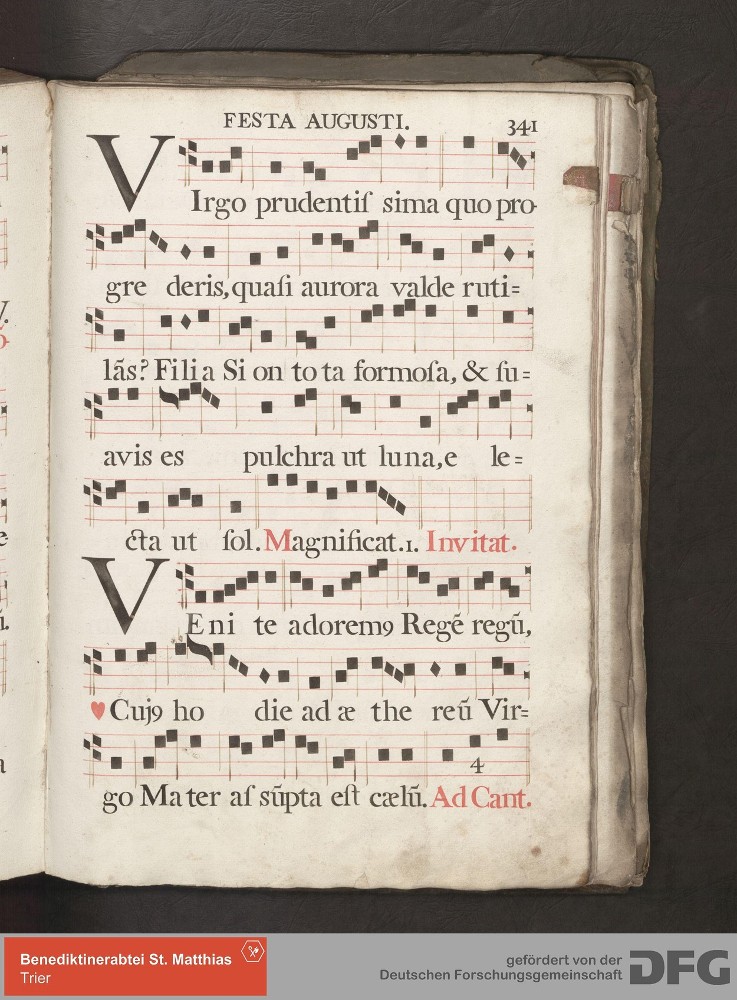 FESTA AUGUSTI. 341
VIrgo prudentiſ sima quo pro-
gre deris, quaſi aurora valde ruti=
lãs? Filia Si on to ta formoſa, & ſu=
avis es pulchra ut luna, e le=
cta ut ſol. Magnificat. 1. Invitat.
VEni te adorem9 Regẽ regũ,
♥ Cuj9 ho die ad æ the reũ Vir=
4
go Ma ter aſ sũpta eſt cælũ. Ad Cant.
Benediktinerabtei St. Matthias
Trier
gefördert von der
Deutschen Forschungsgemeinschaft
DFG